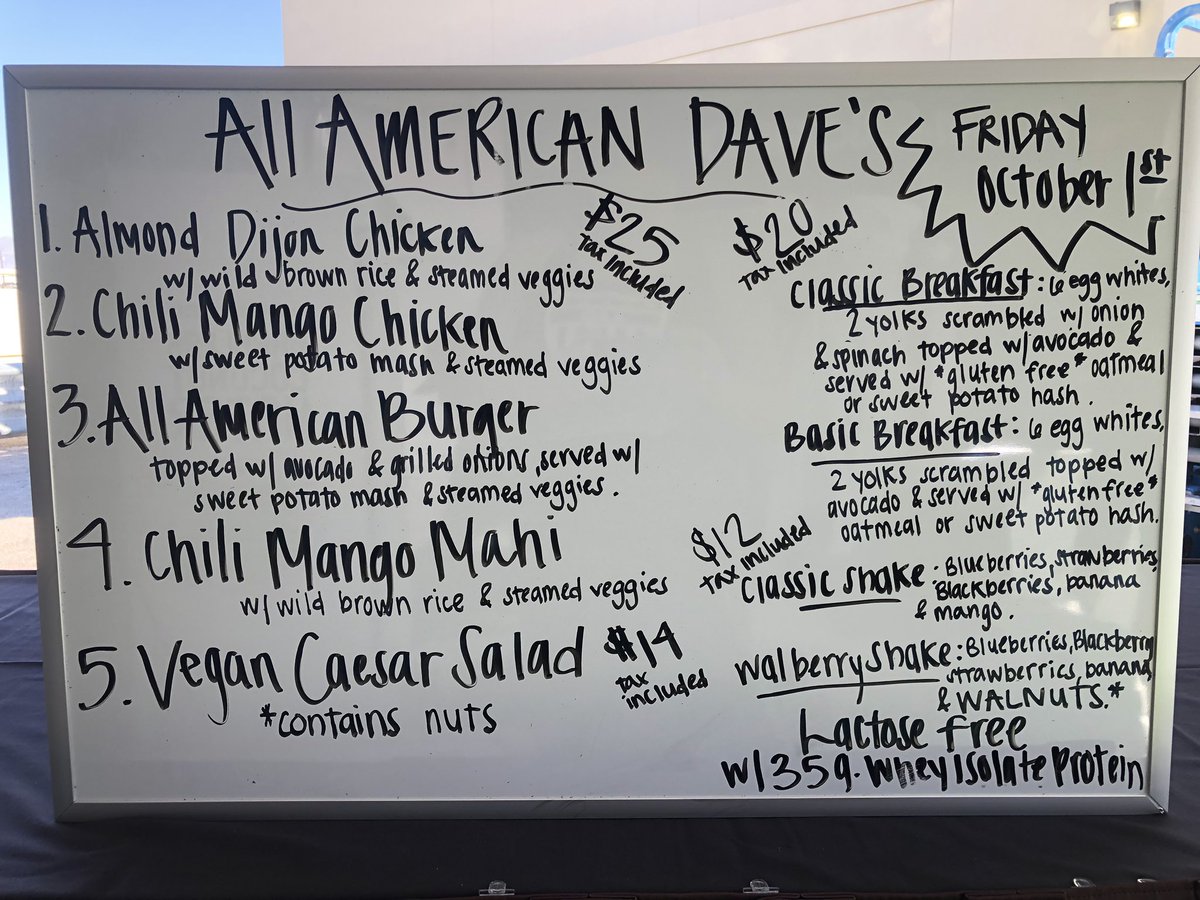 All AMERICAN DAVE'S
FRIDAY
OCTOBER 1st
1. Almond Dijon Chicken
w/ wild brown rice & steamed veggies
$25
tax included
2. Chili Mango Chicken
w/ sweet potato mash & steamed veggies
3. All American Burger
topped w/ avocado & grilled onions, served w/
sweet potato mash & steamed veggies.
4. Chili Mango Mahi
w/ wild brown rice & steamed veggies
5. Vegan Caesar Salad
*contains nuts
$14
tax
included
$20
tax included
Classic Breakfast: 6 egg whites,
2 yolks scrambled w/ onion
& spinach topped w/ avocado &
served w/ *gluten free* oatmeal
or sweet potato hash.
Basic Breakfast: 6 egg whites,
2 yolks scrambled topped w/
avocado & served w/ *gluten free*
oatmeal or sweet potato hash.
$12
tax included
Classic Shake: Blueberries, strawberries,
Blackberries, banana
& mango.
Walberry Shake: Blueberries, Blackberry
strawberries, banana
& WALNUTS.*
Lactose free
w/ 35g. Whey Isolate Protein